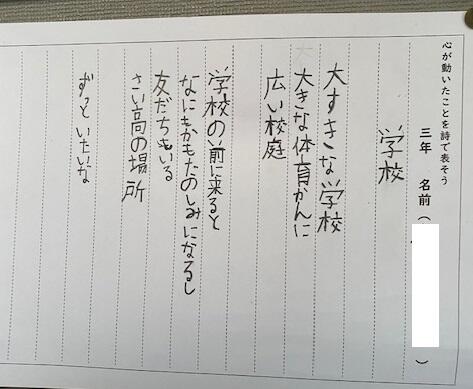 心が動いたことを詩で表そう
三年 名前（ ）
学校
大すきな学校
大きな体育かんに
広い校庭
学校の前に来ると
なにもかもたのしみになるし
友だちもいる
さい高の場所
ずっといたいな